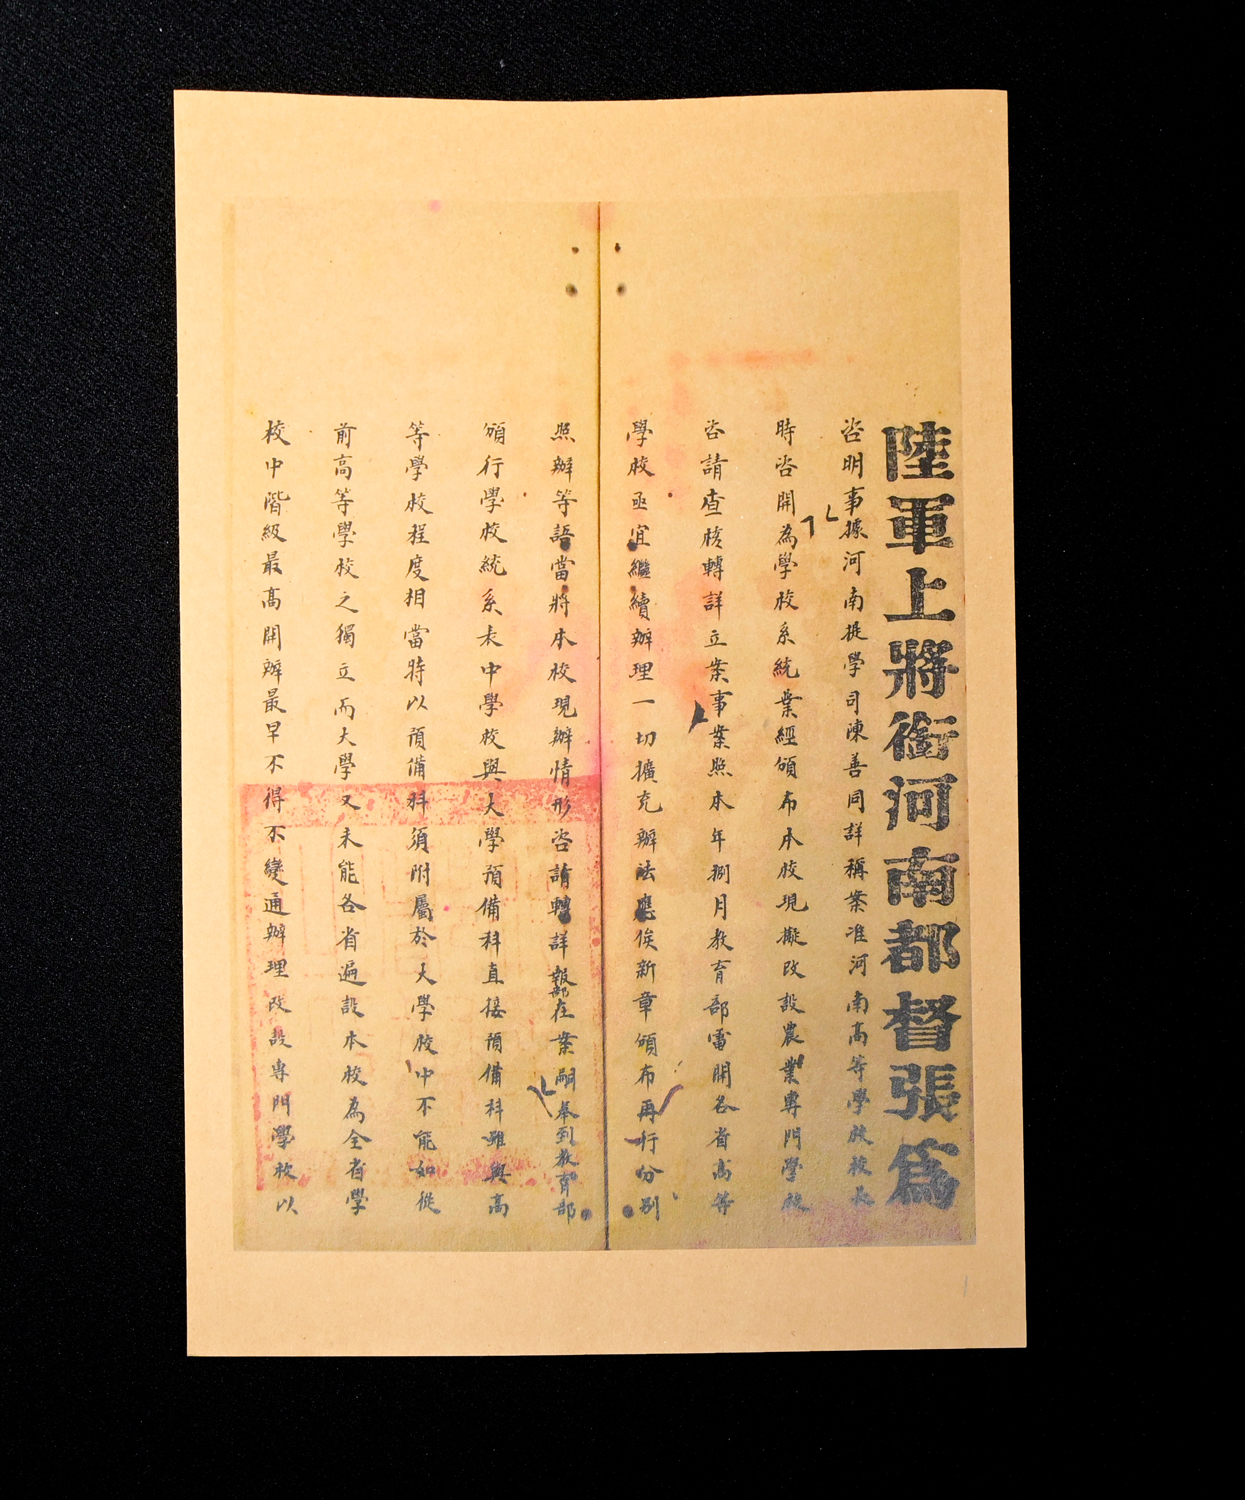 陸軍上將銜河南都督張為
咨明事據河南提學司陳善同詳稱案准河南高等學校校長
時咨開為學校系統業經頒布本校現擬改設農業專門學校
咨請查核轉詳立案事案照本年捌月教育部電開各省高等
學校亟宜繼續辦理一切擴充辦法應俟新章頒布再行分別
照辦等語當將本校現辦情形咨請轉詳報部在案嗣奉到教育部
頒行學校統系表中學校與大學預備科直接預備科雖與高
等學校程度相當特以預備科須附屬於大學校中不能如從
前高等學校之獨立而大學又未能各省遍設本校為全省學
校中階級最高開辦最早不得不變通辦理改設專門學校以